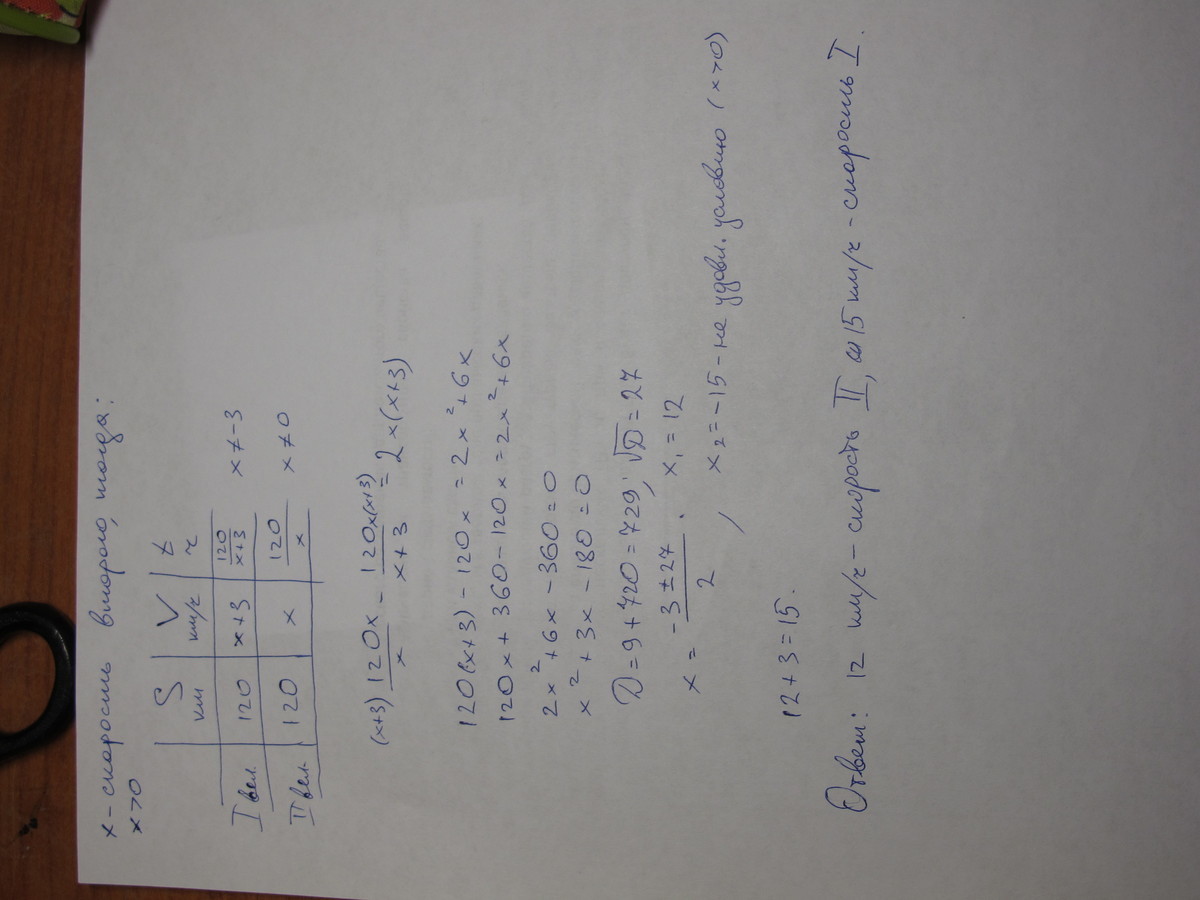 x - скорость второго, тогда:
x>0
S км V км/ч t ч
I вел. 120 x+3 120/(x+3) x≠-3
II вел. 120 x 120/x x≠0
(x+3) 120x/x - 120x(x+3)/(x+3) = 2x(x+3)
120(x+3) - 120x = 2x²+6x
120x + 360 - 120x = 2x²+6x
2x²+6x-360=0
x²+3x-180=0
D=9+720=729; √D=27
x = (-3±27)/2 . x₁=12
, x₂=-15 - не удовл. условию (x>0)
12+3=15.
Ответ: 12 км/ч - скорость II, 15 км/ч - скорость I.